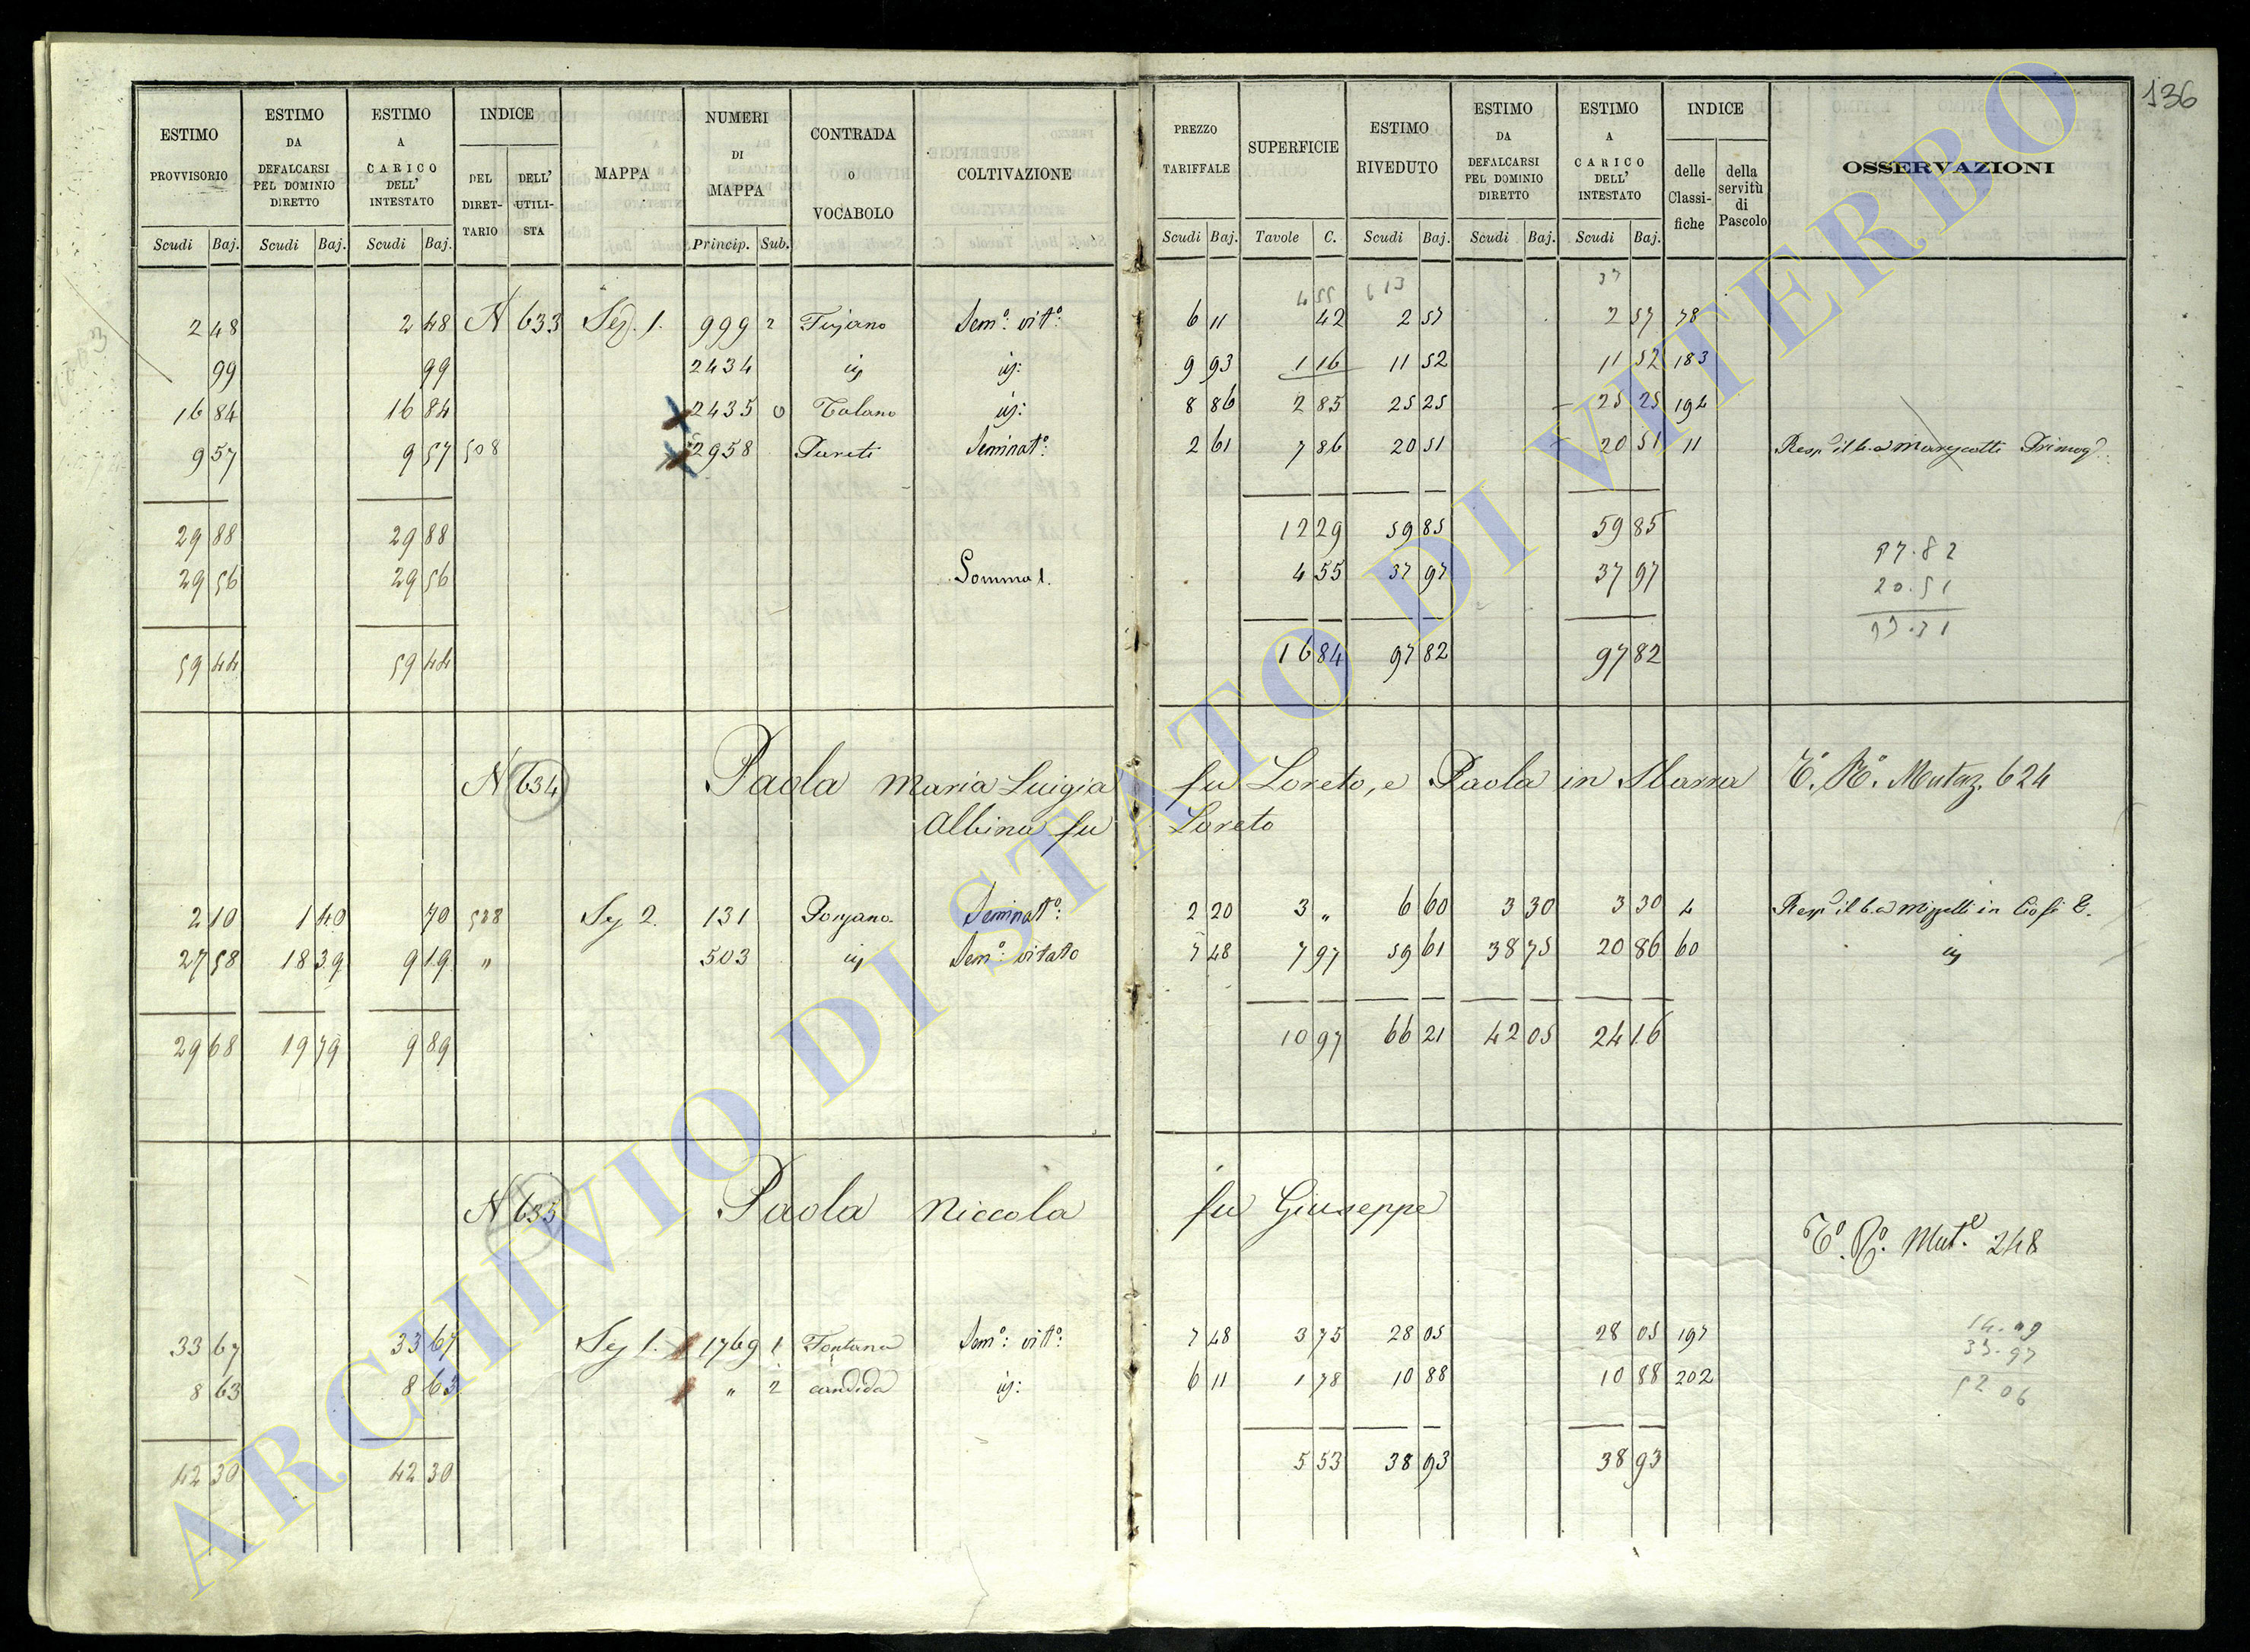 136
ESTIMO PROVVISORIO
ESTIMO DA DEFALCARSI PEL DOMINIO DIRETTO
ESTIMO A CARICO DELL' INTESTATO
INDICE
DEL DIRET-TARIO
DELL' UTILI-STA
MAPPA
NUMERI DI MAPPA
CONTRADA O VOCABOLO
COLTIVAZIONE
PREZZO TARIFFALE
SUPERFICIE
ESTIMO RIVEDUTO
ESTIMO DA DEFALCARSI PEL DOMINIO DIRETTO
ESTIMO A CARICO DELL' INTESTATO
INDICE
delle Classi-fiche
della servitù di Pascolo
OSSERVAZIONI
Scudi Baj. Scudi Baj. Scudi Baj. Princip. Sub. Scudi Baj. Tavole C. Scudi Baj. Scudi Baj. Scudi Baj.
4 55 37
2 48 2 48 N 633 Sez. 1. 999 2 Sem.º vit.º 6 11 42 2 57 2 57 78
99 99 2434 9 93 1 16 11 52 11 52 183
16 84 16 84 2435 8 86 2 85 25 25 25 25 194
9 57 9 57 508 2958 Pureti Seminat.º 2 61 7 86 20 51 20 51 11
29 88 29 88 12 29 59 85 59 85
29 56 29 56 Somma 1. 4 55 37 97 37 97
59 44 59 44 16 84 97 82 97 82
97.82
20.51
77.31
N 634 Paola Maria Luigia fu Loreto, e Paola in Sbarra Mutaz. 624
Albina fu Loreto
2 10 1 40 70 528 Sez 2. 131 Seminat.º 2 20 3 „ 6 60 3 30 3 30 4
27 58 18 39 9 19 „ 503 Sem.º vitato 7 48 7 97 59 61 38 75 20 86 60
29 68 19 79 9 89 10 97 66 21 42 05 24 16
N 635 Paola Niccola fu Giuseppe
Mut.e 248
33 67 33 67 Sez 1. 1769 1 Fontana Sem.º vit.º 7 48 3 75 28 05 28 05 197
8 63 8 63 „ 2 candida 6 11 1 78 10 88 10 88 202
42 30 42 30 5 53 38 93 38 93
52 06
ARCHIVIO DI STATO DI VITERBO